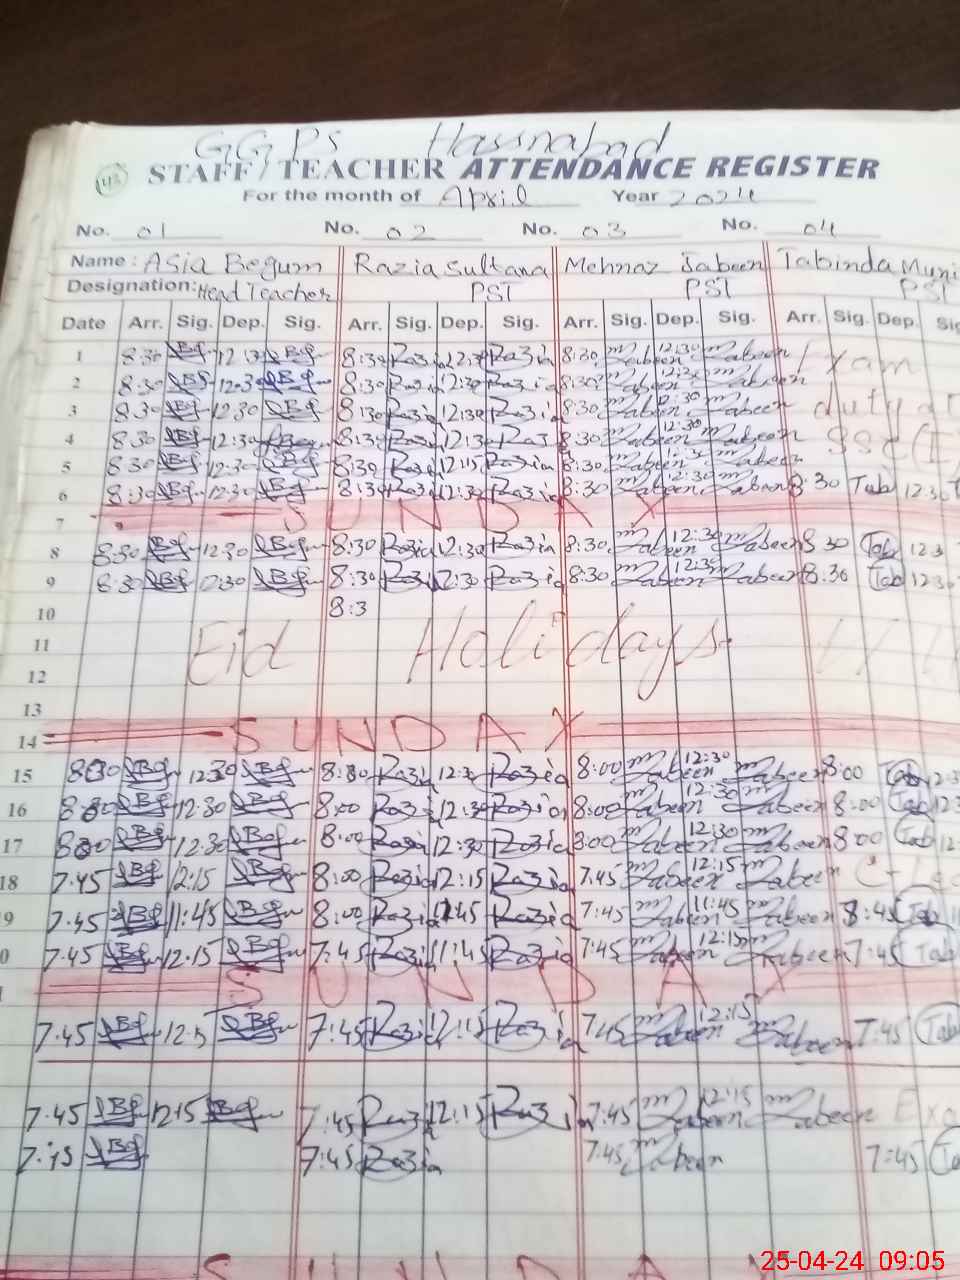 GGPS Hassnabad
STAFF/TEACHER ATTENDANCE REGISTER
For the month of April Year 2024
No. 01 No. 02 No. 03 No. 04
Name: Asia Begum Razia Sultana Mehnaz Jabeen Tabinda Muni
Designation: Head Teacher PST PST PST
Date Arr. Sig. Dep. Sig. Arr. Sig. Dep. Sig. Arr. Sig. Dep. Sig. Arr. Sig. Dep. Sig
1 8:30 12:30 8:30 Razia 12:30 Razia 8:30 Jabeen 12:30 Jabeen Exam
2 8:30 12:30 8:30 Razia 12:30 Razia 8:30 Jabeen 12:30 Jabeen
3 8:30 12:30 8:30 Razia 12:30 Razia 8:30 Jabeen 12:30 Jabeen duty at
4 8:30 12:30 8:30 Razia 12:30 Razia 8:30 Jabeen 12:30 Jabeen SSC
5 8:30 12:30 8:30 Razia 12:15 Razia 8:30 Jabeen 12:30 Jabeen
6 8:30 12:30 8:30 Razia 12:30 Razia 8:30 Jabeen 12:30 Jabeen 8:30 Tab 12:30
7 SUNDAY
8 8:30 12:30 8:30 Razia 12:30 Razia 8:30 Jabeen 12:30 Jabeen 8:30 Tab 12:3
9 8:30 8:30 Razia 12:30 Razia 8:30 Jabeen 12:30 Jabeen 8:30 Tab 12:30
10 8:3
11 Eid Holidays
12
13
14 SUNDAY
15 12:30 Razia 12:30 Razia 8:00 Jabeen 12:30 Jabeen 8:00 Tab 12:3
16 12:30 8:00 Razia 12:30 Razia 8:00 Jabeen 12:30 Jabeen 8:00 Tab 12:3
17 12:30 8:00 Razia 12:30 Razia 8:00 Jabeen 12:30 Jabeen 8:00 Tab 12
18 7:45 12:15 8:00 Razia 12:15 Razia 7:45 Jabeen 12:15 Jabeen
9 7:45 11:45 8:00 Razia 11:45 Razia 7:45 Jabeen 11:45 Jabeen 8:45 Tab
0 7:45 12:15 7:45 Razia 11:45 Razia 7:45 Jabeen 12:15 Jabeen 7:45 Tab
SUNDAY
7:45 7:45 Razia 12:15 Razia 7:45 Jabeen 12:15 Jabeen 7:45 Tab
7:45 12:15 7:45 Razia 12:15 Razia 7:45 Jabeen 12:15 Jabeen Exa
7:45 Razia 7:45 Jabeen 7:45
SUNDAY
25-04-24 09:05